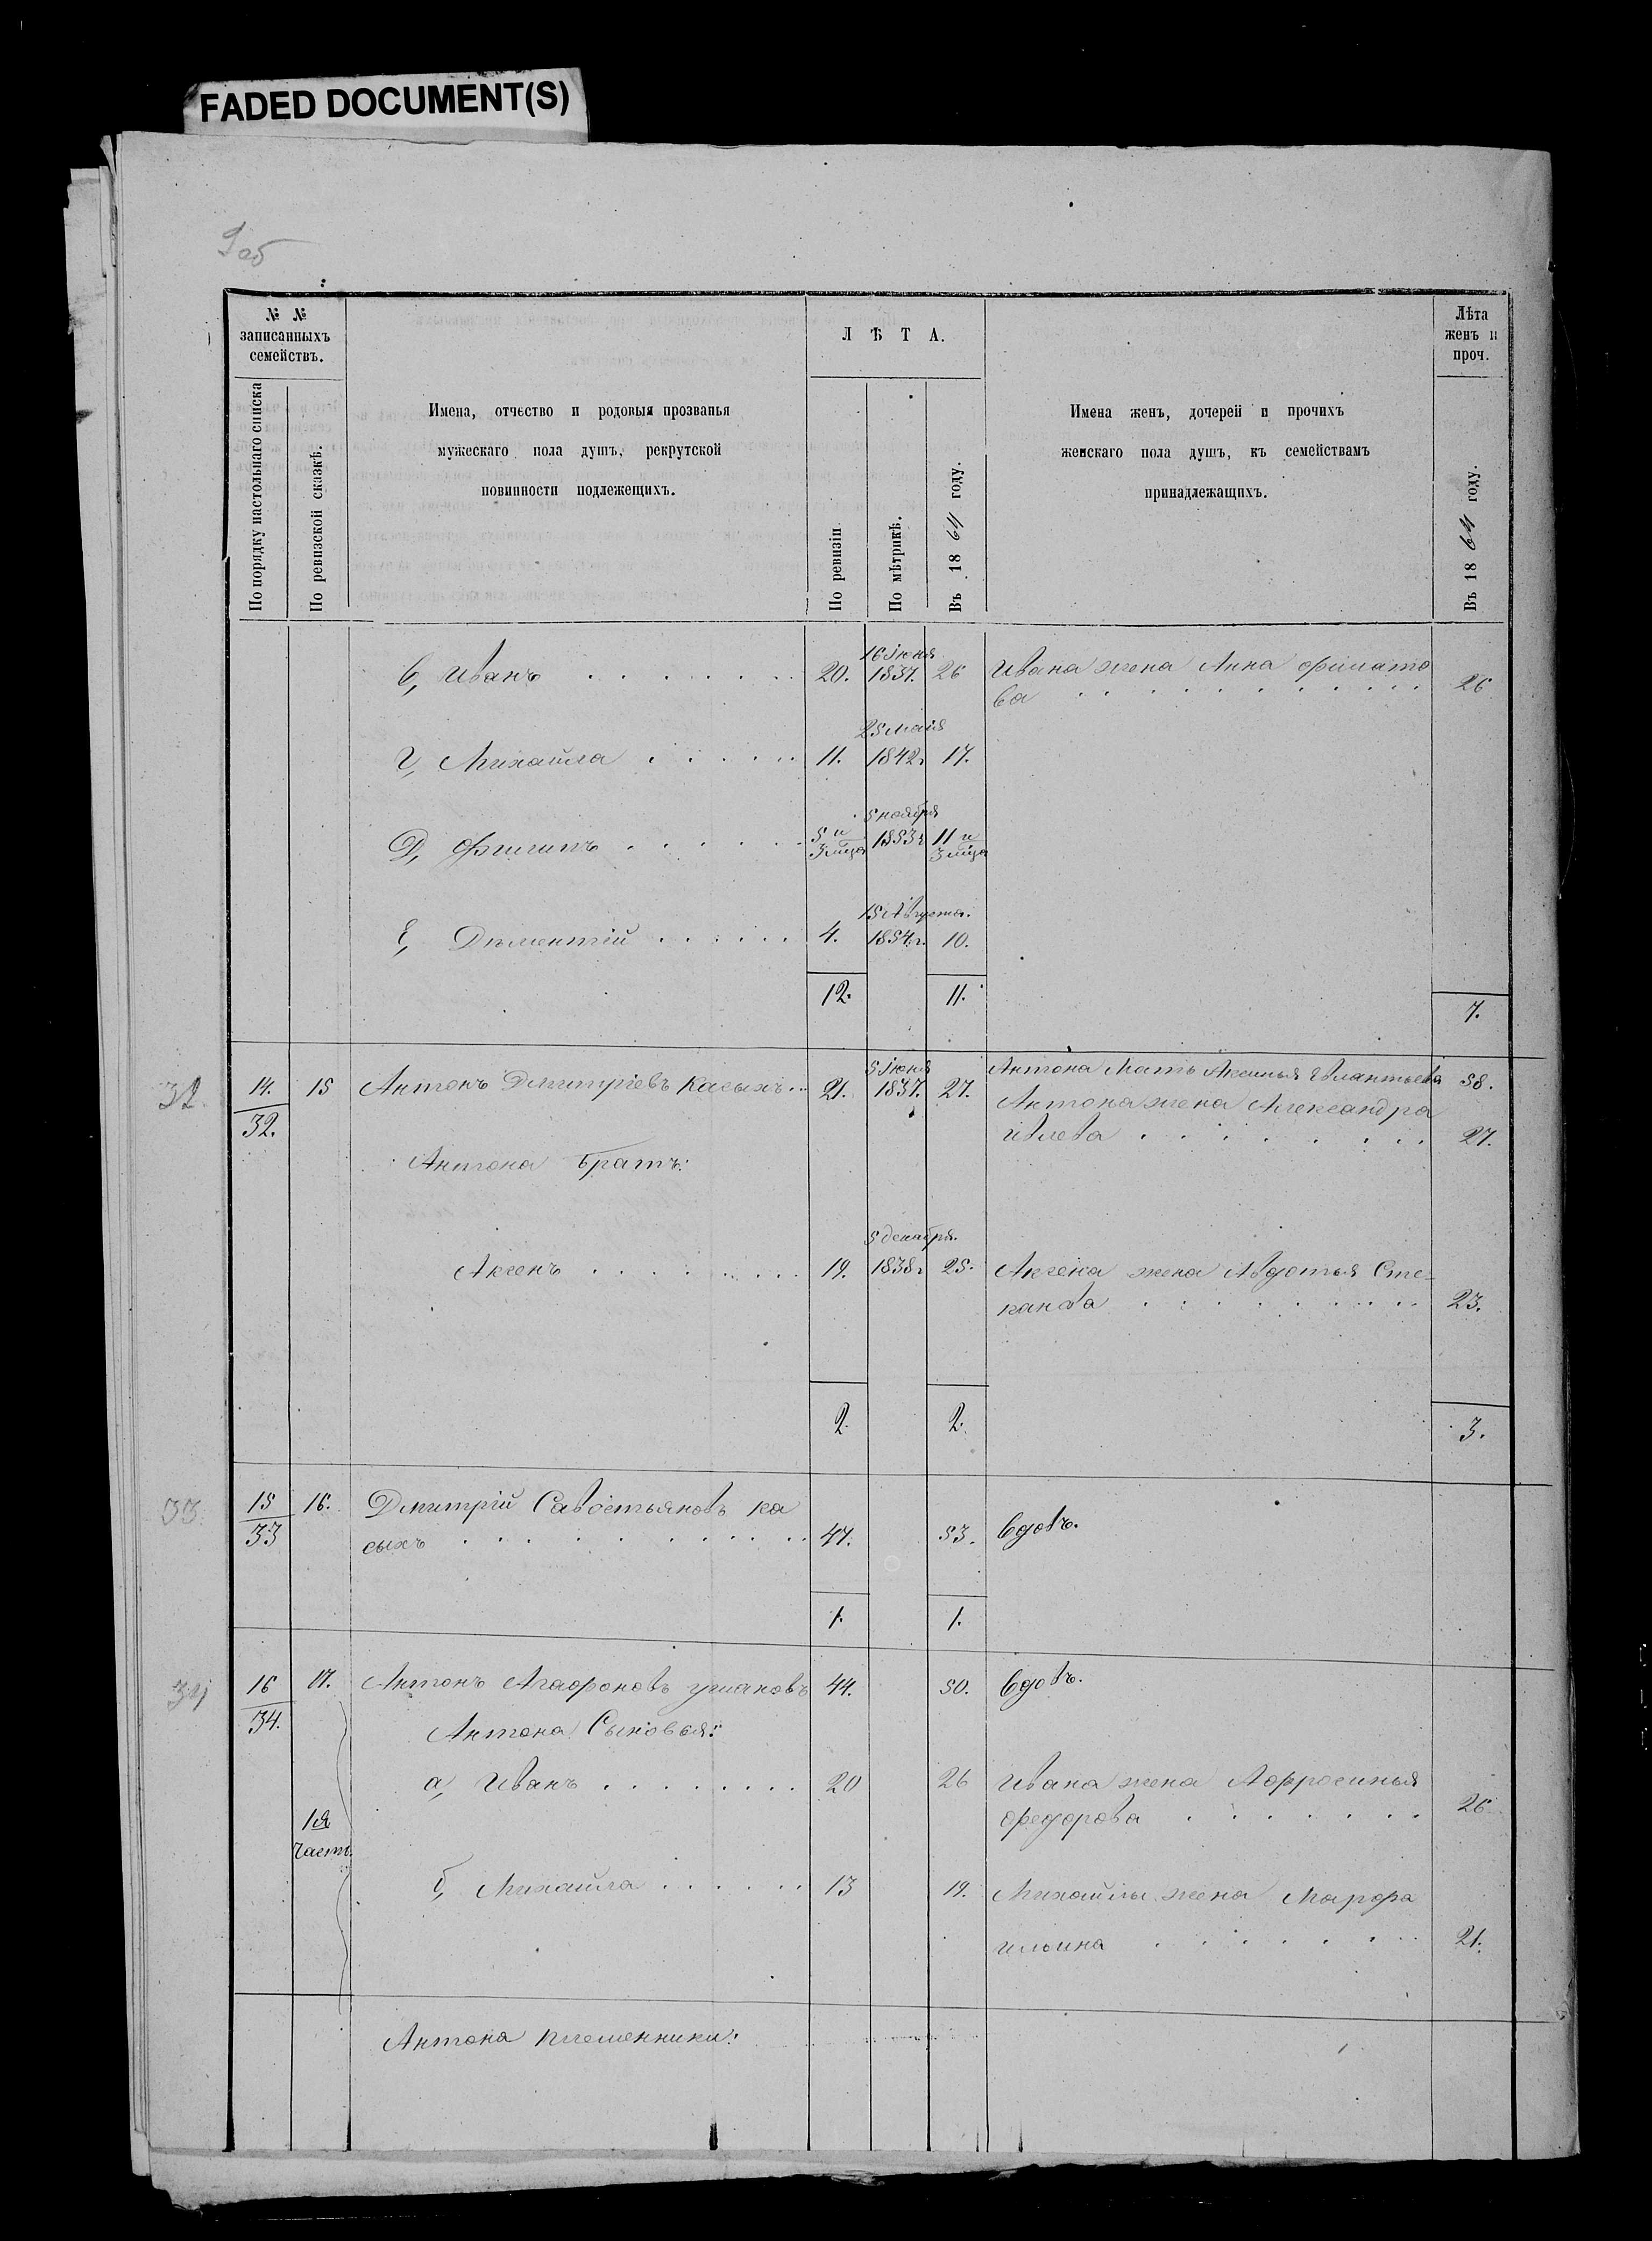 FADED DOCUMENT(S)
9 об
№ №
записанныхъ
семействъ.
По порядку настольнаго списка
По ревизской сказкѣ.
Имена, отчество и родовыя прозванья
мужескаго пола душъ, рекрутской
повинности подлежещихъ.
Л Ѣ Т А.
По ревизіи
По мѣтрикѣ.
Въ 1864 году.
Имена женъ, дочерей и прочихъ
женскаго пола душъ, къ семействамъ
принадлежащихъ.
Лѣта
женъ и
проч.
Въ 1864 году.
в, Иванъ 20. 16 іюня 1837. 26 Ивана жена Анна филато
ва 26
г, Михайла 11. 25 маія 1842 г 17.
Д, Филипъ 5 и 3 мѣца 5 ноября 1853 г 11 и 3 мѣца
Е, Дѣментій 4. 15 Августа. 1854 г. 10.
12. 11. 7.
32. 14. 15 Антонъ Дмитріевъ Касыхъ 21. 5 іюня 1837. 27. Антона Мать Аксинья 58.
32. Антона жена Александра
Ивлева 27.
Антона братъ:
Аксенъ 19. 5 декабря. 1838 г 25. Аксена жена Авдотья Сте-
панова 23.
2 2. 3.
33. 15 16. Дмитрій Савостьяновъ Ка
33 сыхъ 47. 53. вдовъ.
1. 1.
34 16 17. Антонъ Агафоновъ ушаковъ 44. 50. вдовъ.
34. Антона Сыновья:
а, Иванъ 20 26 Ивана жена Афросинья
федорова 26
1я
часть.
б, Михайла 13 19. Михайлы жена Марфа
ильина 21.
Антона племенники: